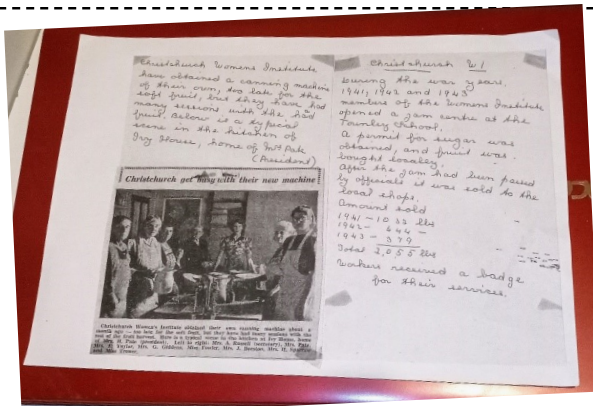 Christchurch Womens Institute
have obtained a canning machine
of their own, too late for the
soft fruit, but they have had
many sessions with the hard
fruit. Below is a typical
scene in the kitchen of
Ivy House, home of Mrs Pate
(President)
Christchurch get busy with their new machine
Christchurch Women's Institute obtained their own canning machine about a
month ago — too late for the soft fruit, but they have had many sessions with the
rest of the fruit harvest. Here is a typical scene in the kitchen of Ivy House, home
of Mrs. H. Pate (president). Left to right: Mrs. A. Russell (secretary), Mrs. Pate,
Mrs. F. Taylor, Mrs. G. Miss Mrs. J. Mrs. H.
and Miss
Christchurch W1
During the war years.
1941, 1942 and 1943
members of the Womens Institute
opened a jam centre at the
Townley School.
A permit for sugar was
obtained, and fruit was
bought locally.
After the jam had been passed
by officials it was sold to the
local shops.
Amount sold
1941 — 1032 lbs
1942 - 644 -
1943 - 379
Total 2,055 lbs
Workers received a badge
for their services.